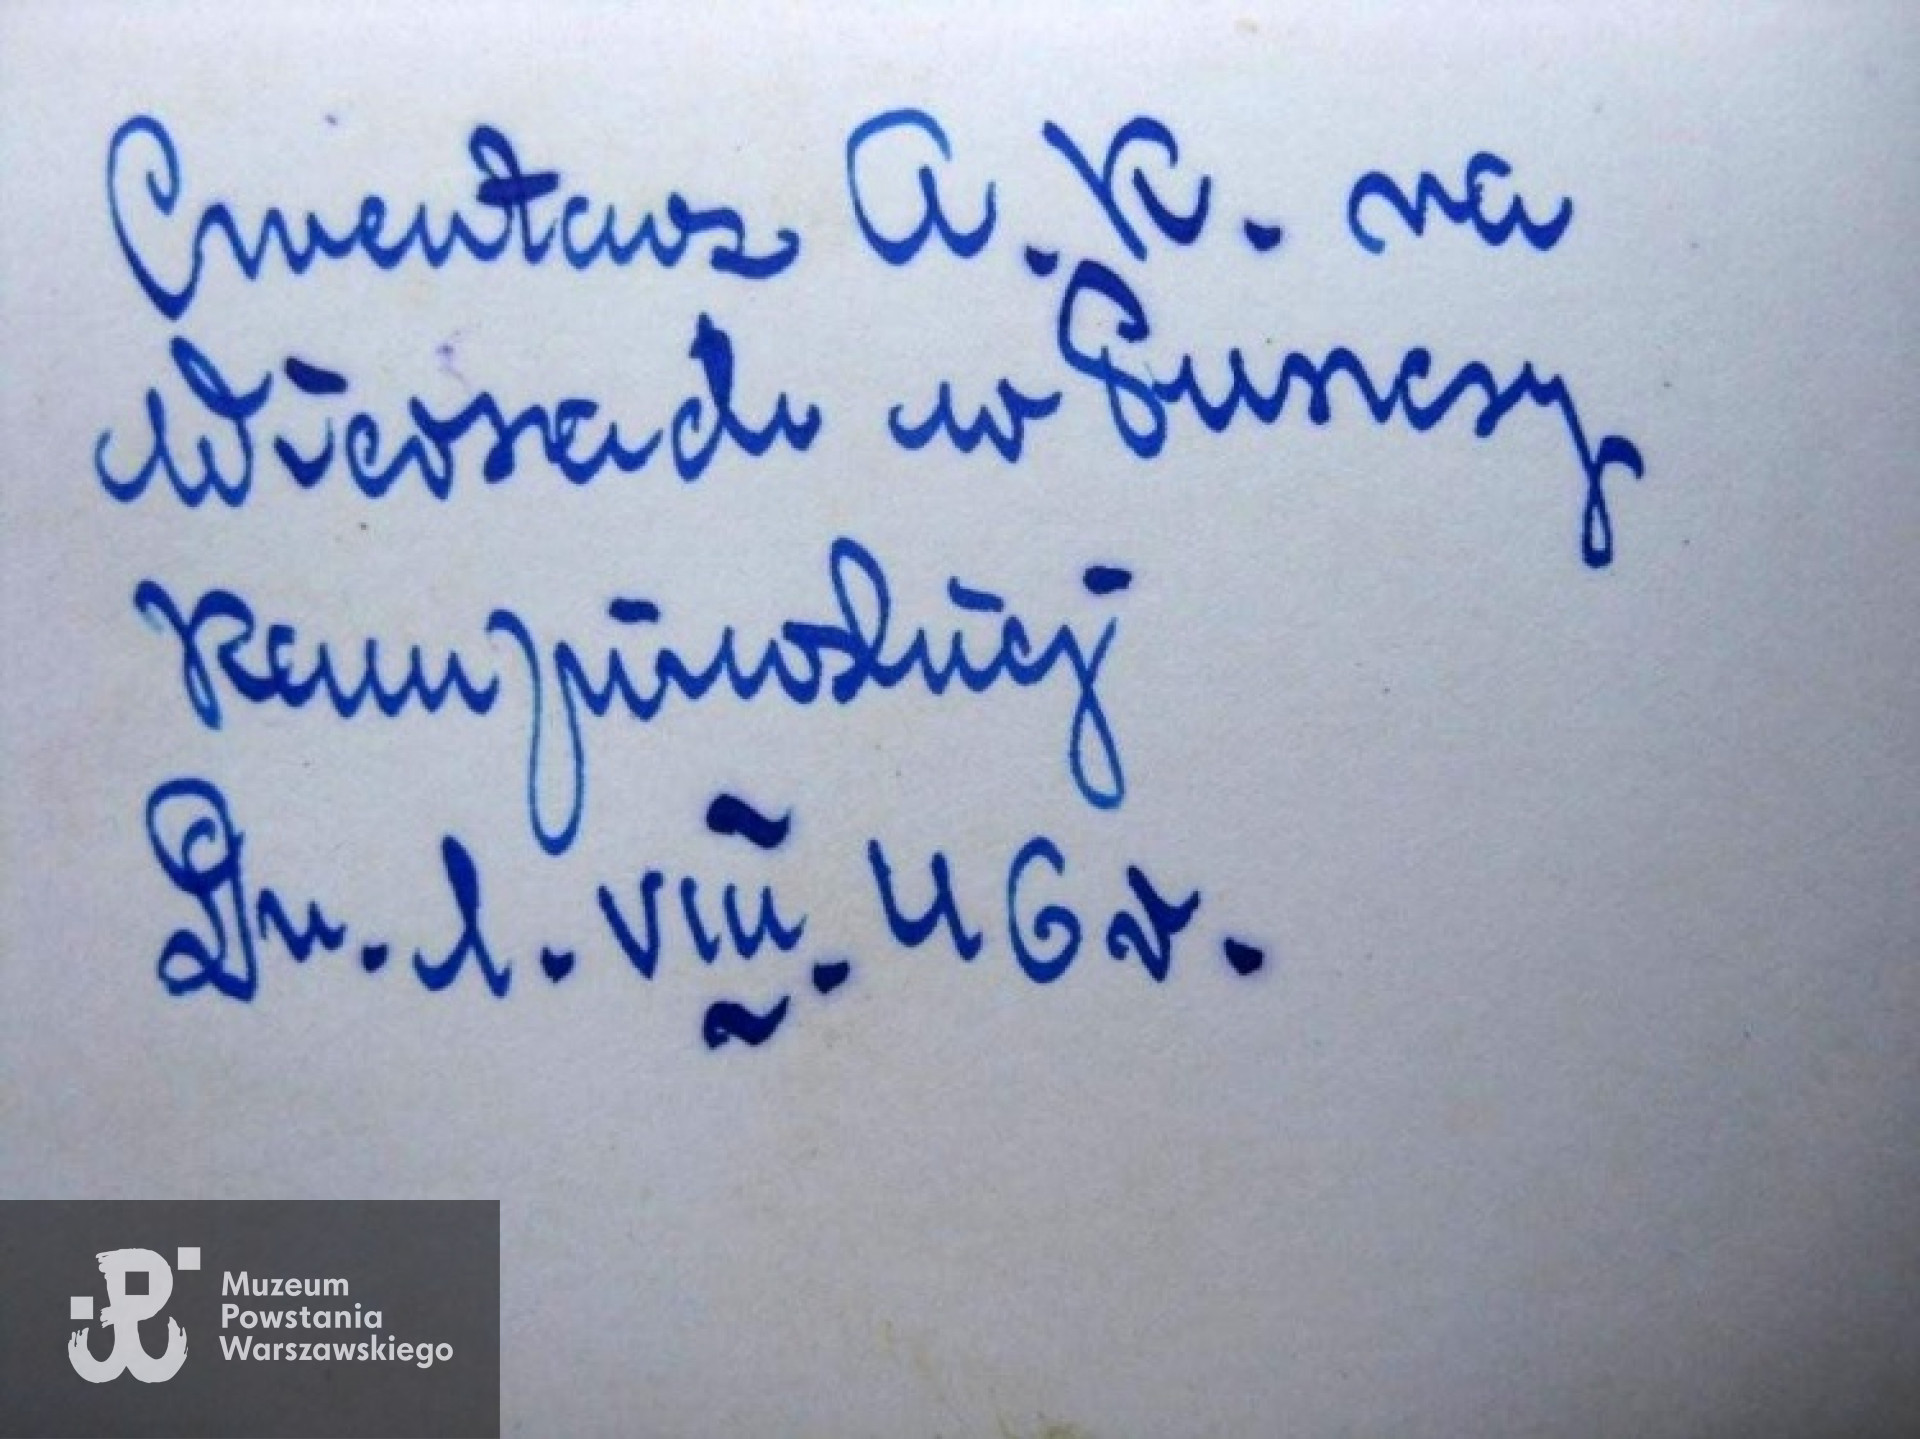 Cmentarz A.K. na
Wierszach w Puszczy
Kampinoskiej
Dn. 1. VIII. 46 r.
Muzeum
Powstania
Warszawskiego